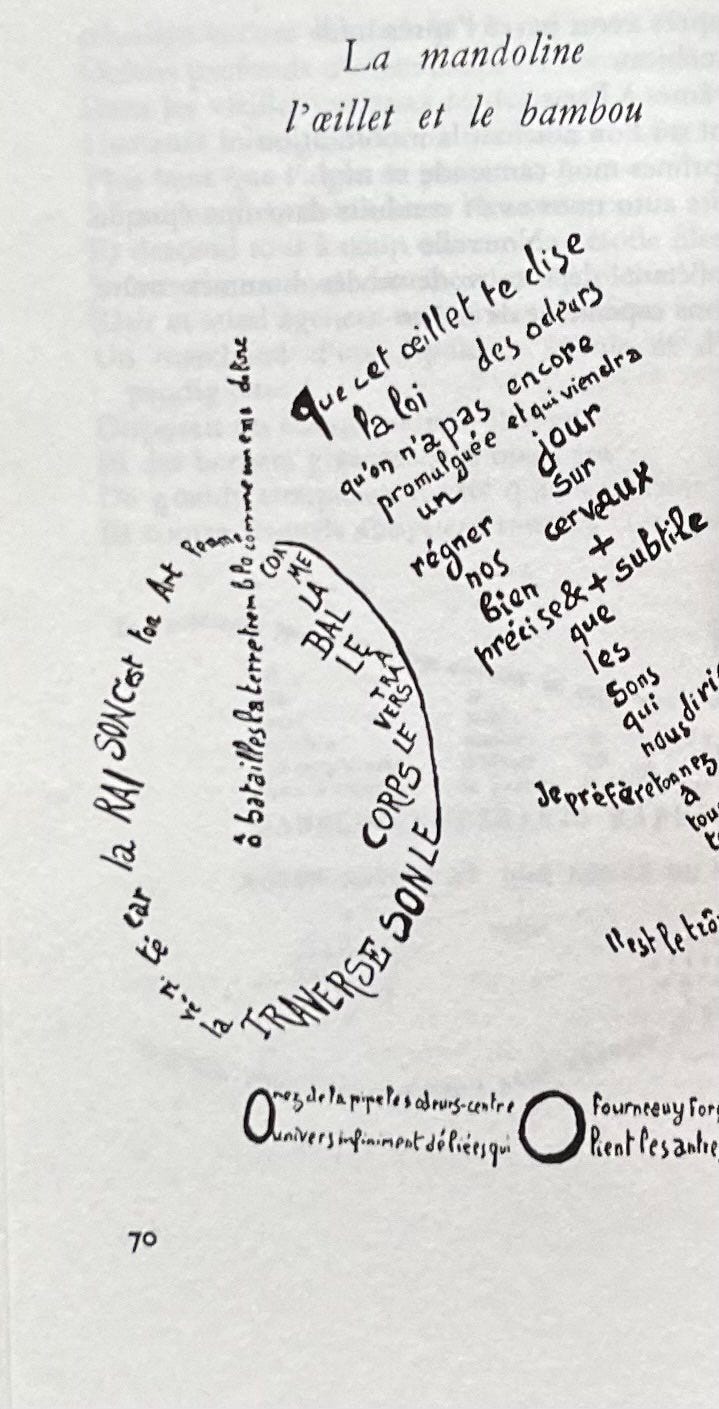 La mandoline
l'œillet et le bambou
que cet œillet te dise
la loi des odeurs
qu'on n'a pas encore
promulguée et qui viendra
un jour
régner sur
nos cerveaux
bien +
précise & + subtile
que
les
sons
qui
nous diri
Je préfère ton nez
à
tou
t
Il est le trô
ô batailles la terre tremble comme une mandoline
COMME
LA
BAL
LE
À
TRA
VERS
LE
CORPS
LE SON TRAVERSE
la vé ri té car la RAISON c'est ton Art
O nez de la pipe les odeurs-centre O fourneau y forg
univers infiniment déliées qui lient les autre
70